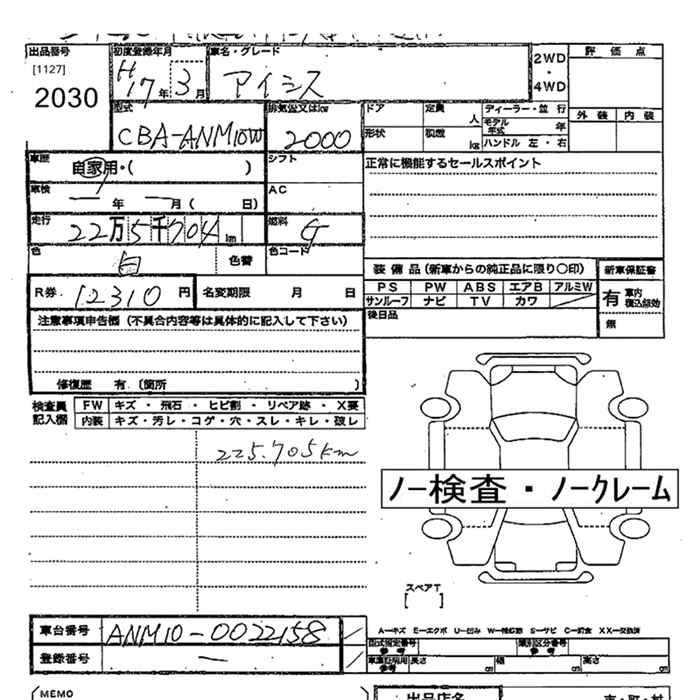 出品番号 初度登録年月 車名・グレード 2WD・4WD 評価点
[1127] H17年3月 アイシス
2030
型式 排気量又はkw ドア 定員 人 ディーラー・並行 外装 内装
CBA-ANM10W 2000 形状 積載 kg モデル年式 年
ハンドル 左・右
車歴 自家用・( ) シフト 正常に機能するセールスポイント
車検 年 月( 日) AC
走行 22万5千704km 燃料 G
色 白 色替 色コード 装備品(新車からの純正品に限り○印) 新車保証書
R券 12310円 名変期限 月 日 PS PW ABS エアB アルミW 有 車内 積込
サンルーフ ナビ TV カワ
注意事項申告欄(不具合内容等は具体的に記入して下さい) 後日品 無
修復歴 有 (箇所 )
検査員記入欄 FW キズ・飛石・ヒビ割・リペア跡・X要
内装 キズ・汚レ・コゲ・穴・スレ・キレ・破レ
225.705km
ノー検査・ノークレーム
スペアT
[ ]
車台番号 ANM10-0022158 A―キズ E―エクボ U―凹み S―サビ XX―交換済
登録番号 ― 型式指定番号 参考 類別区分番号 参考
長さ cm 幅 cm 高さ cm
MEMO 出品店名 市・町・村